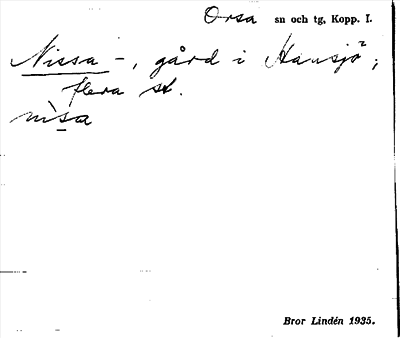 Orsa sn och tg, Kopp. l.
Nissa -, gård i Hansjö²;
flera st.
nìsa
Bror Lindén 1935.